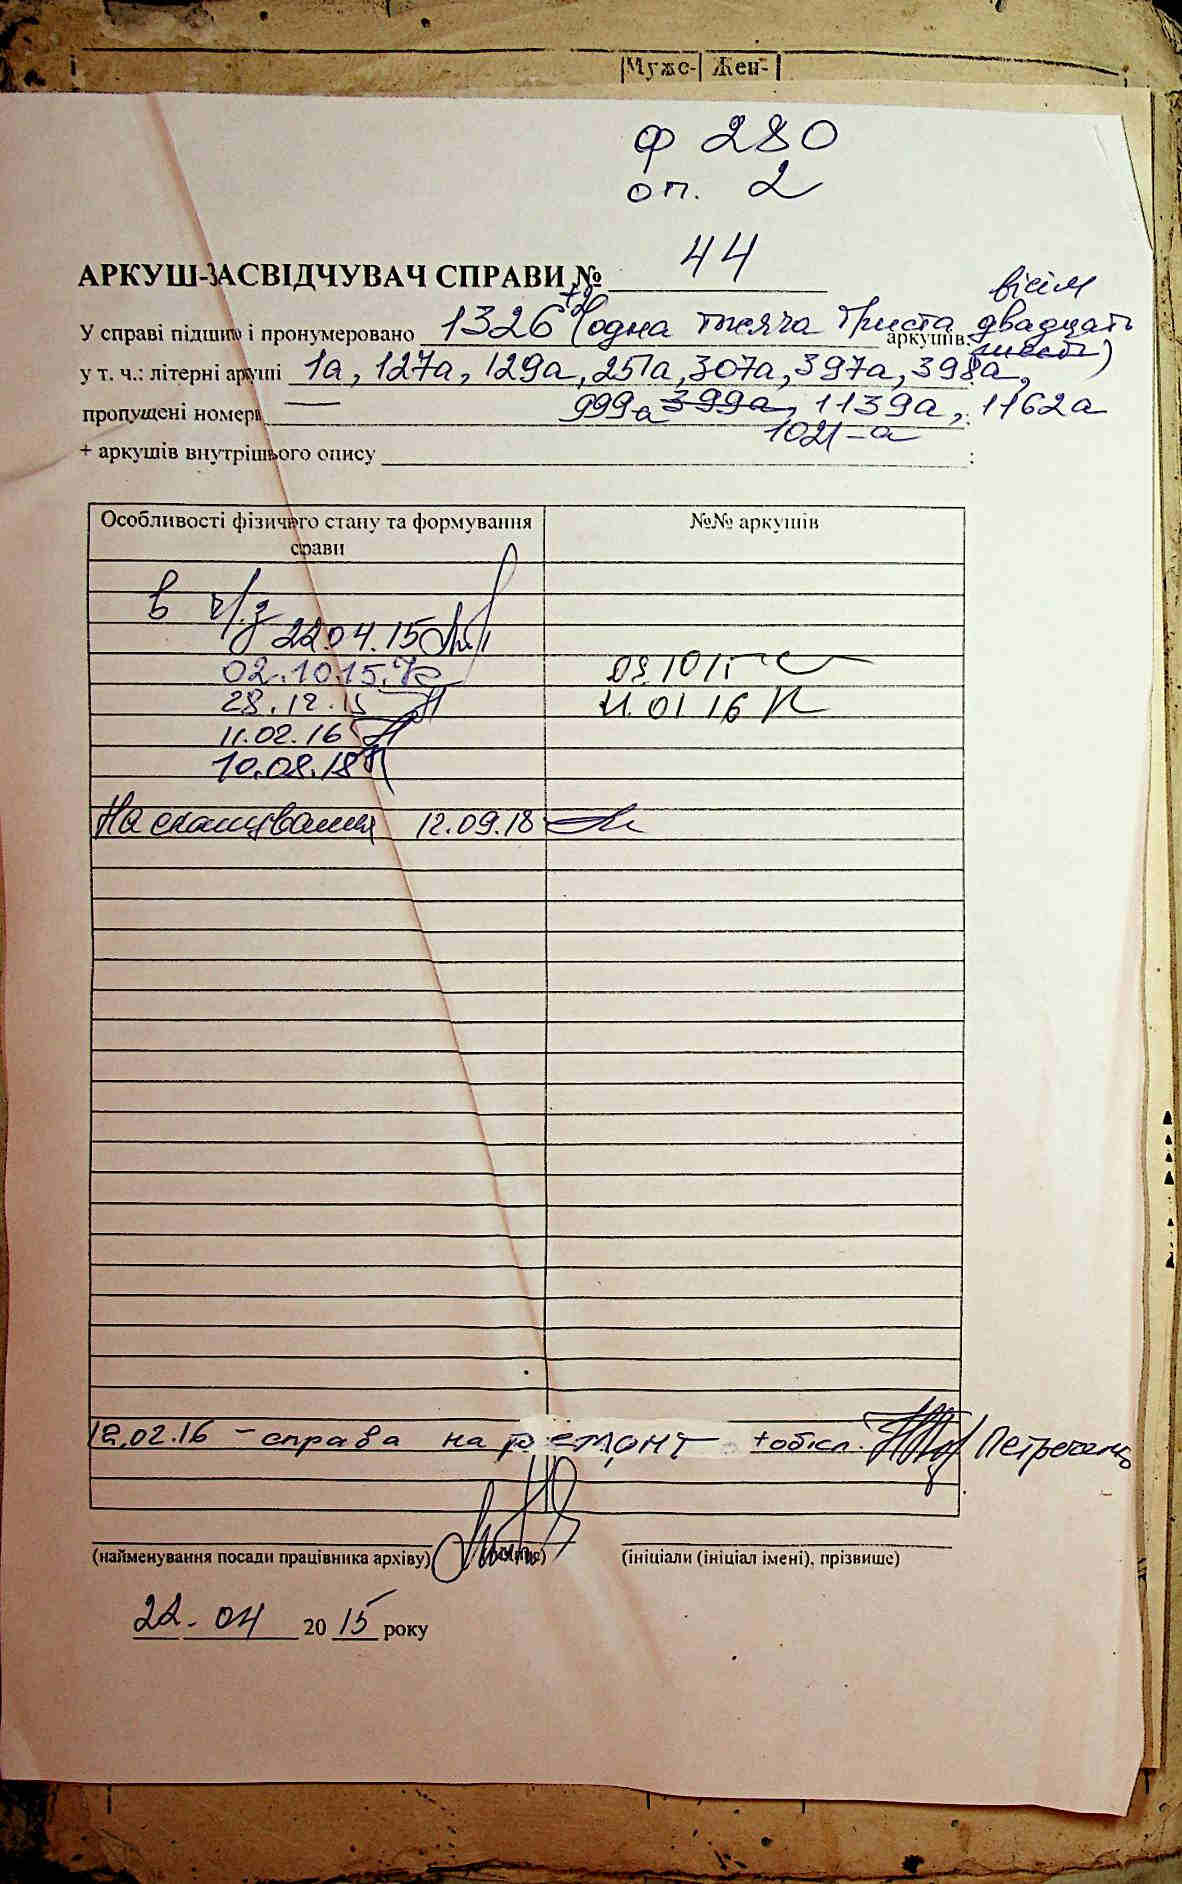 Муже- Жен-
ф 280
оп. 2
АРКУШ-ЗАСВІДЧУВАЧ СПРАВИ № 44
вісім
У справі підшито і пронумеровано 1326 +2 (одна тисяча триста двадцать шість) аркушів:
у т. ч.: літерні аркуші 1а, 127а, 129а, 251а, 307а, 397а, 398а,
пропущені номери — 999а 399а, 1139а, 1162а
1021-а
+ аркушів внутрішнього опису ;
Особливості фізичного стану та формування справи №№ аркушів
в ч/з
22.04.15
02.10.15
28.12.15 11.01 16
11.02.16
10.08.18
На сканування 12.09.18
12.02.16 – справа на ремонт + обкл. Петреченко
(найменування посади працівника архіву) (підпис) (ініціали (ініціал імені), прізвище)
22. 04 2015 року